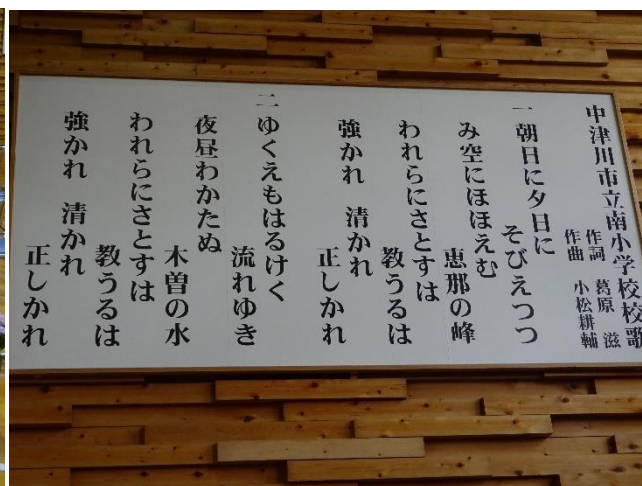 中津川市立南小学校校歌
作詞 葛原 滋
作曲 小松耕輔
一 朝日に夕日に
そびえつつ
み空にほほえむ
恵那の峰
われらにさとすは
教うるは
強かれ 清かれ
正しかれ
二 ゆくえもはるけく
流れゆき
夜昼わかたぬ
木曽の水
われらにさとすは
教うるは
強かれ 清かれ
正しかれ